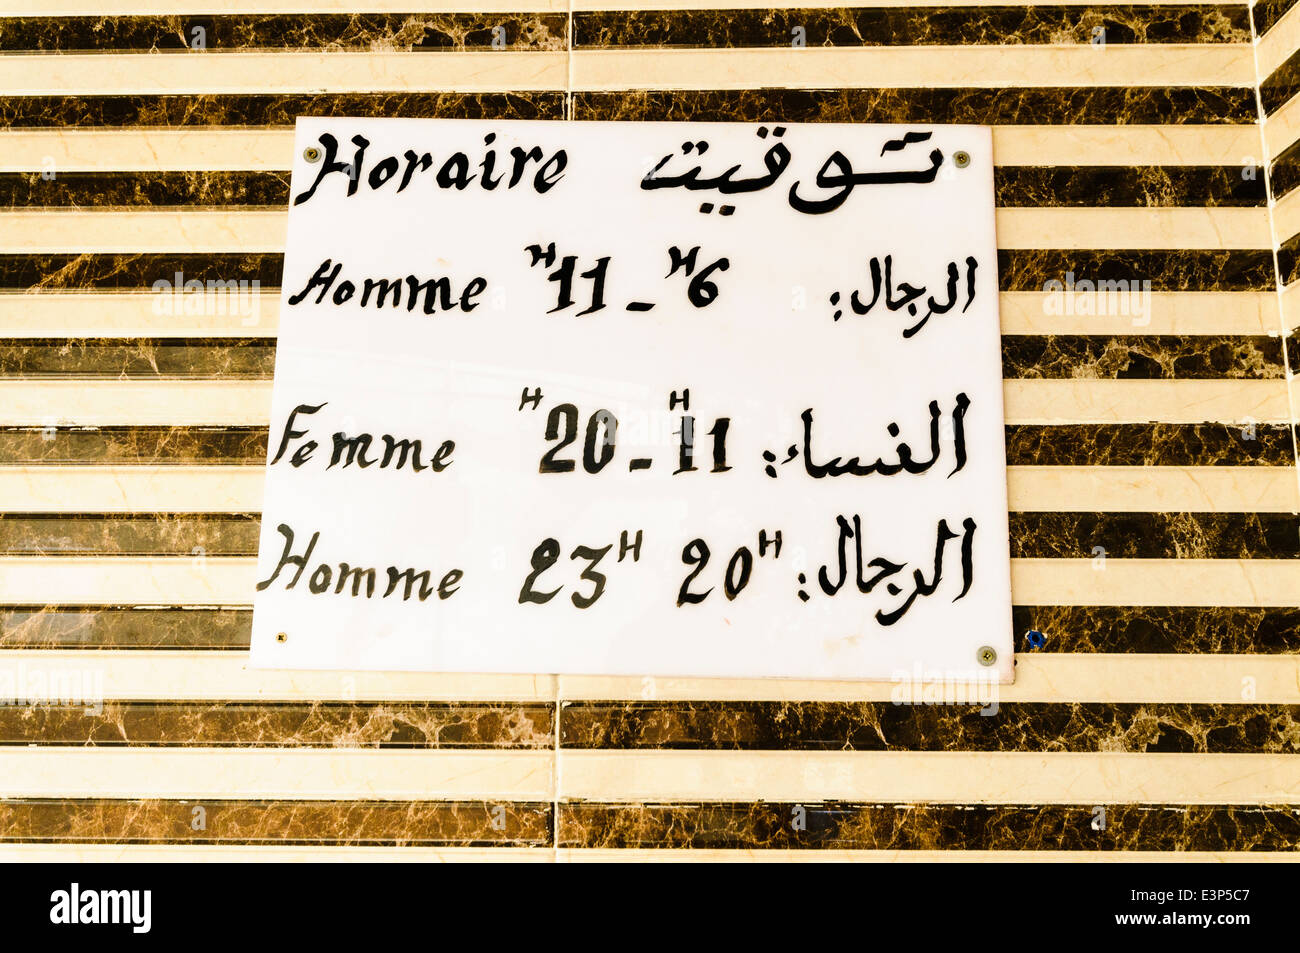 Horaire توقيت
Homme H11 - H6 الرجال:
Femme H20 - H11 النساء:
Homme 23H 20H الرجال:
alamy
Image ID: E3P5C7
www.alamy.com